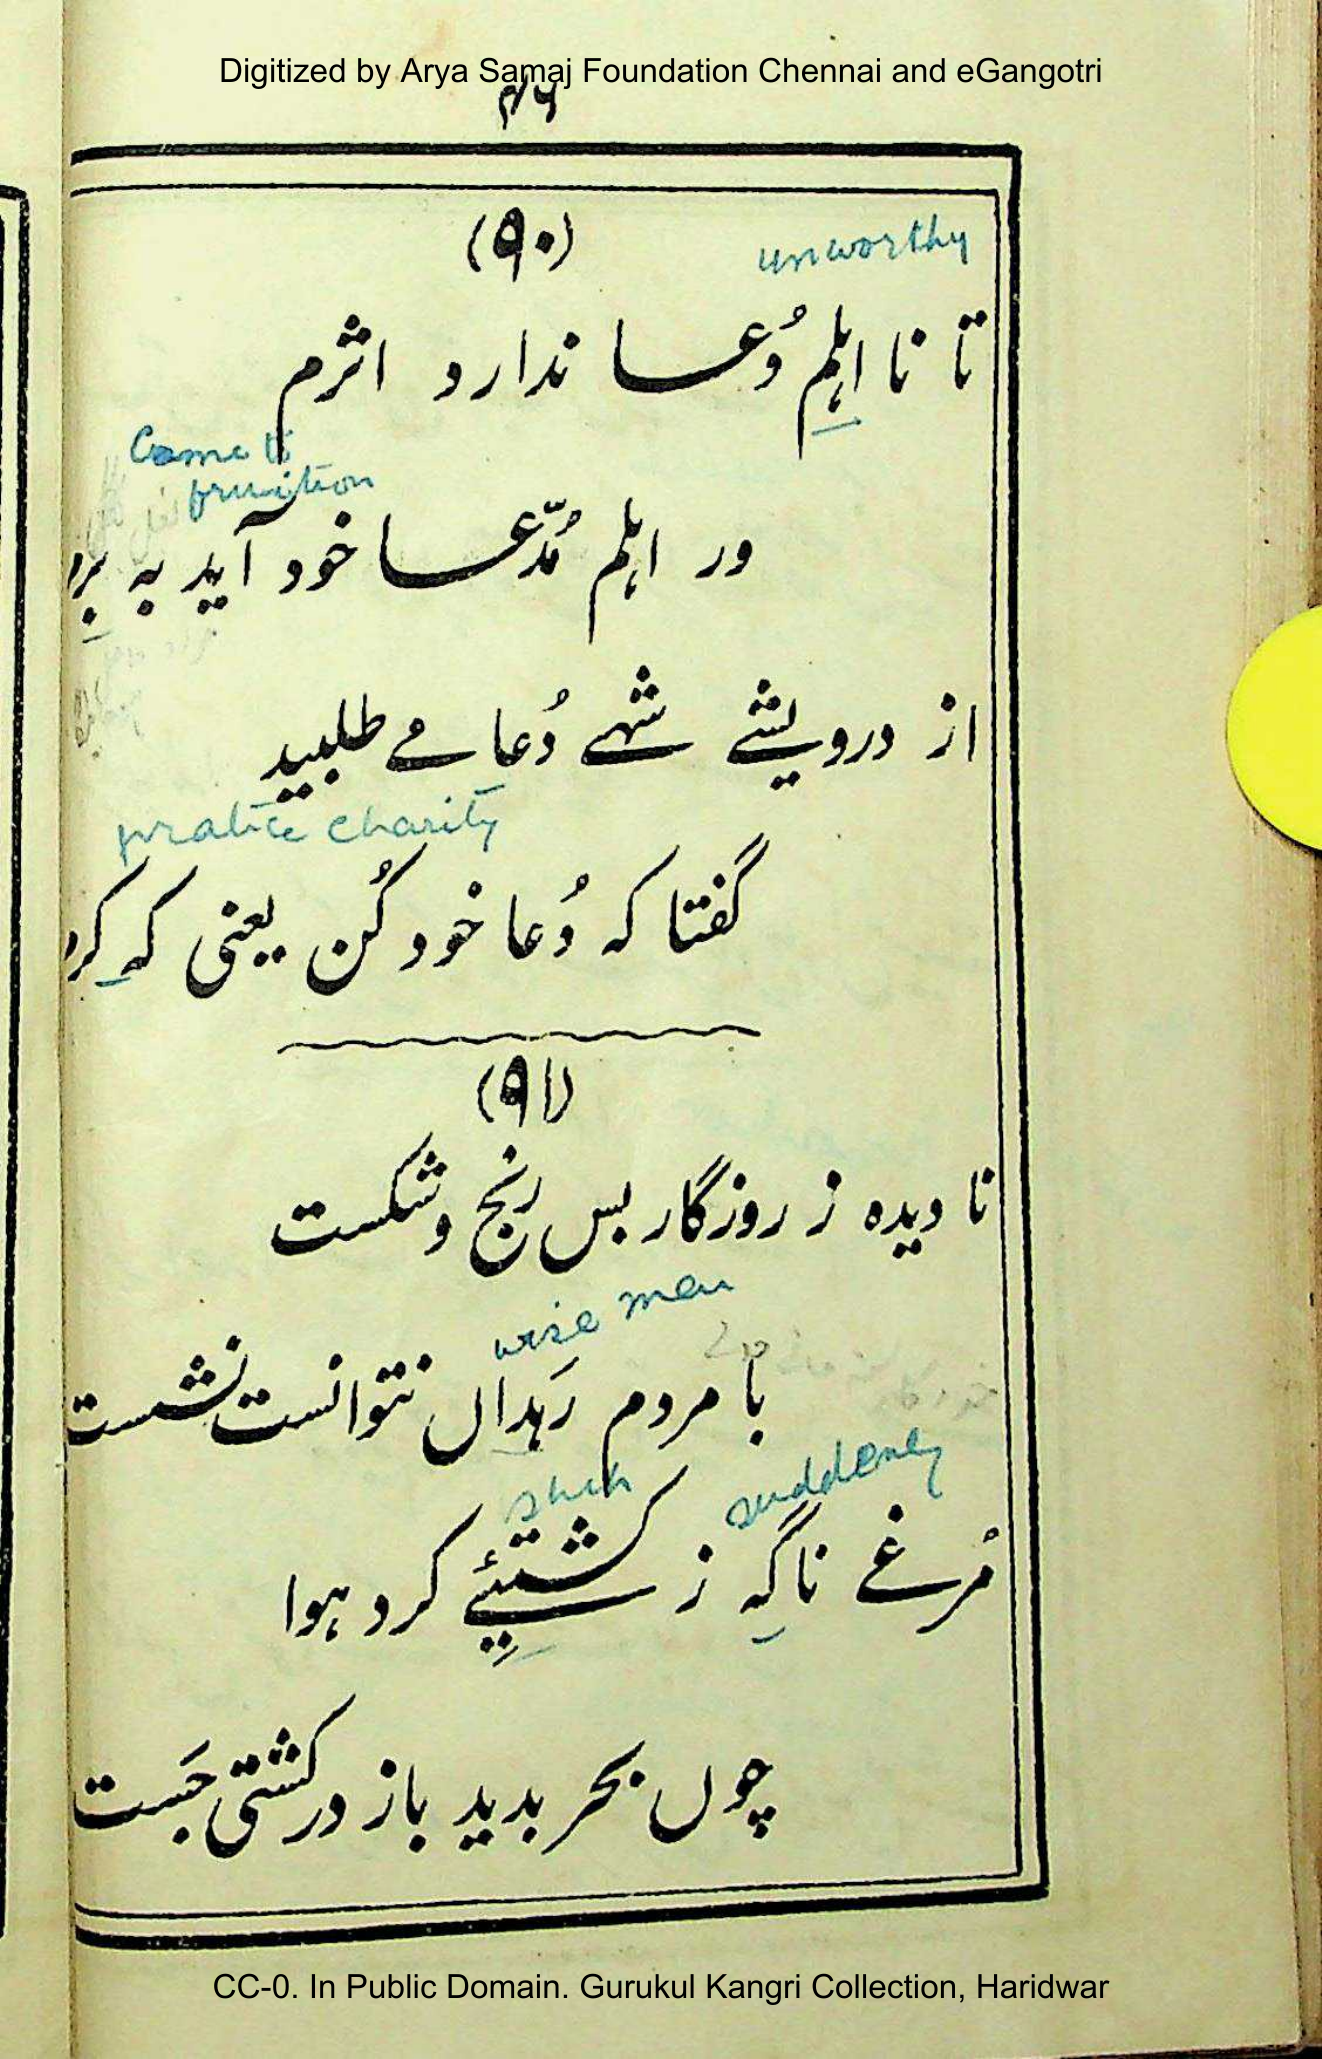 Digitized by Arya Samaj Foundation Chennai and eGangotri
۴۶
(۹۰)
unworthy
تا نا اہلِم دُعا ندارد اثرم
Come to
fruition
ور اہلم مُدّعا خود آید بہ بَرِ
از درویشے شہے دُعا مے طلبید
pratice charity
گفتا کہ دُعا خود کُن یعنی کہ کَرِ
(۹۱)
نا دیدہ ز روزگار بس رنج و شکست
wise men
با مردم رَہداں نتوانست نشست
suddenly
مُرغے ناگہِ ز کشتیِئے کرد ہوا
چوں بحر بدید باز در کشتی جَست
CC-0. In Public Domain. Gurukul Kangri Collection, Haridwar